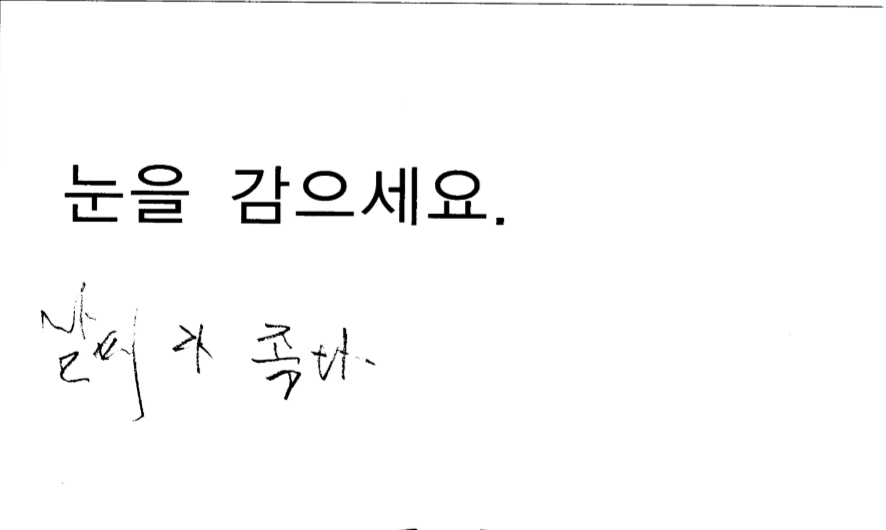 눈을 감으세요.
날씨가 족다.